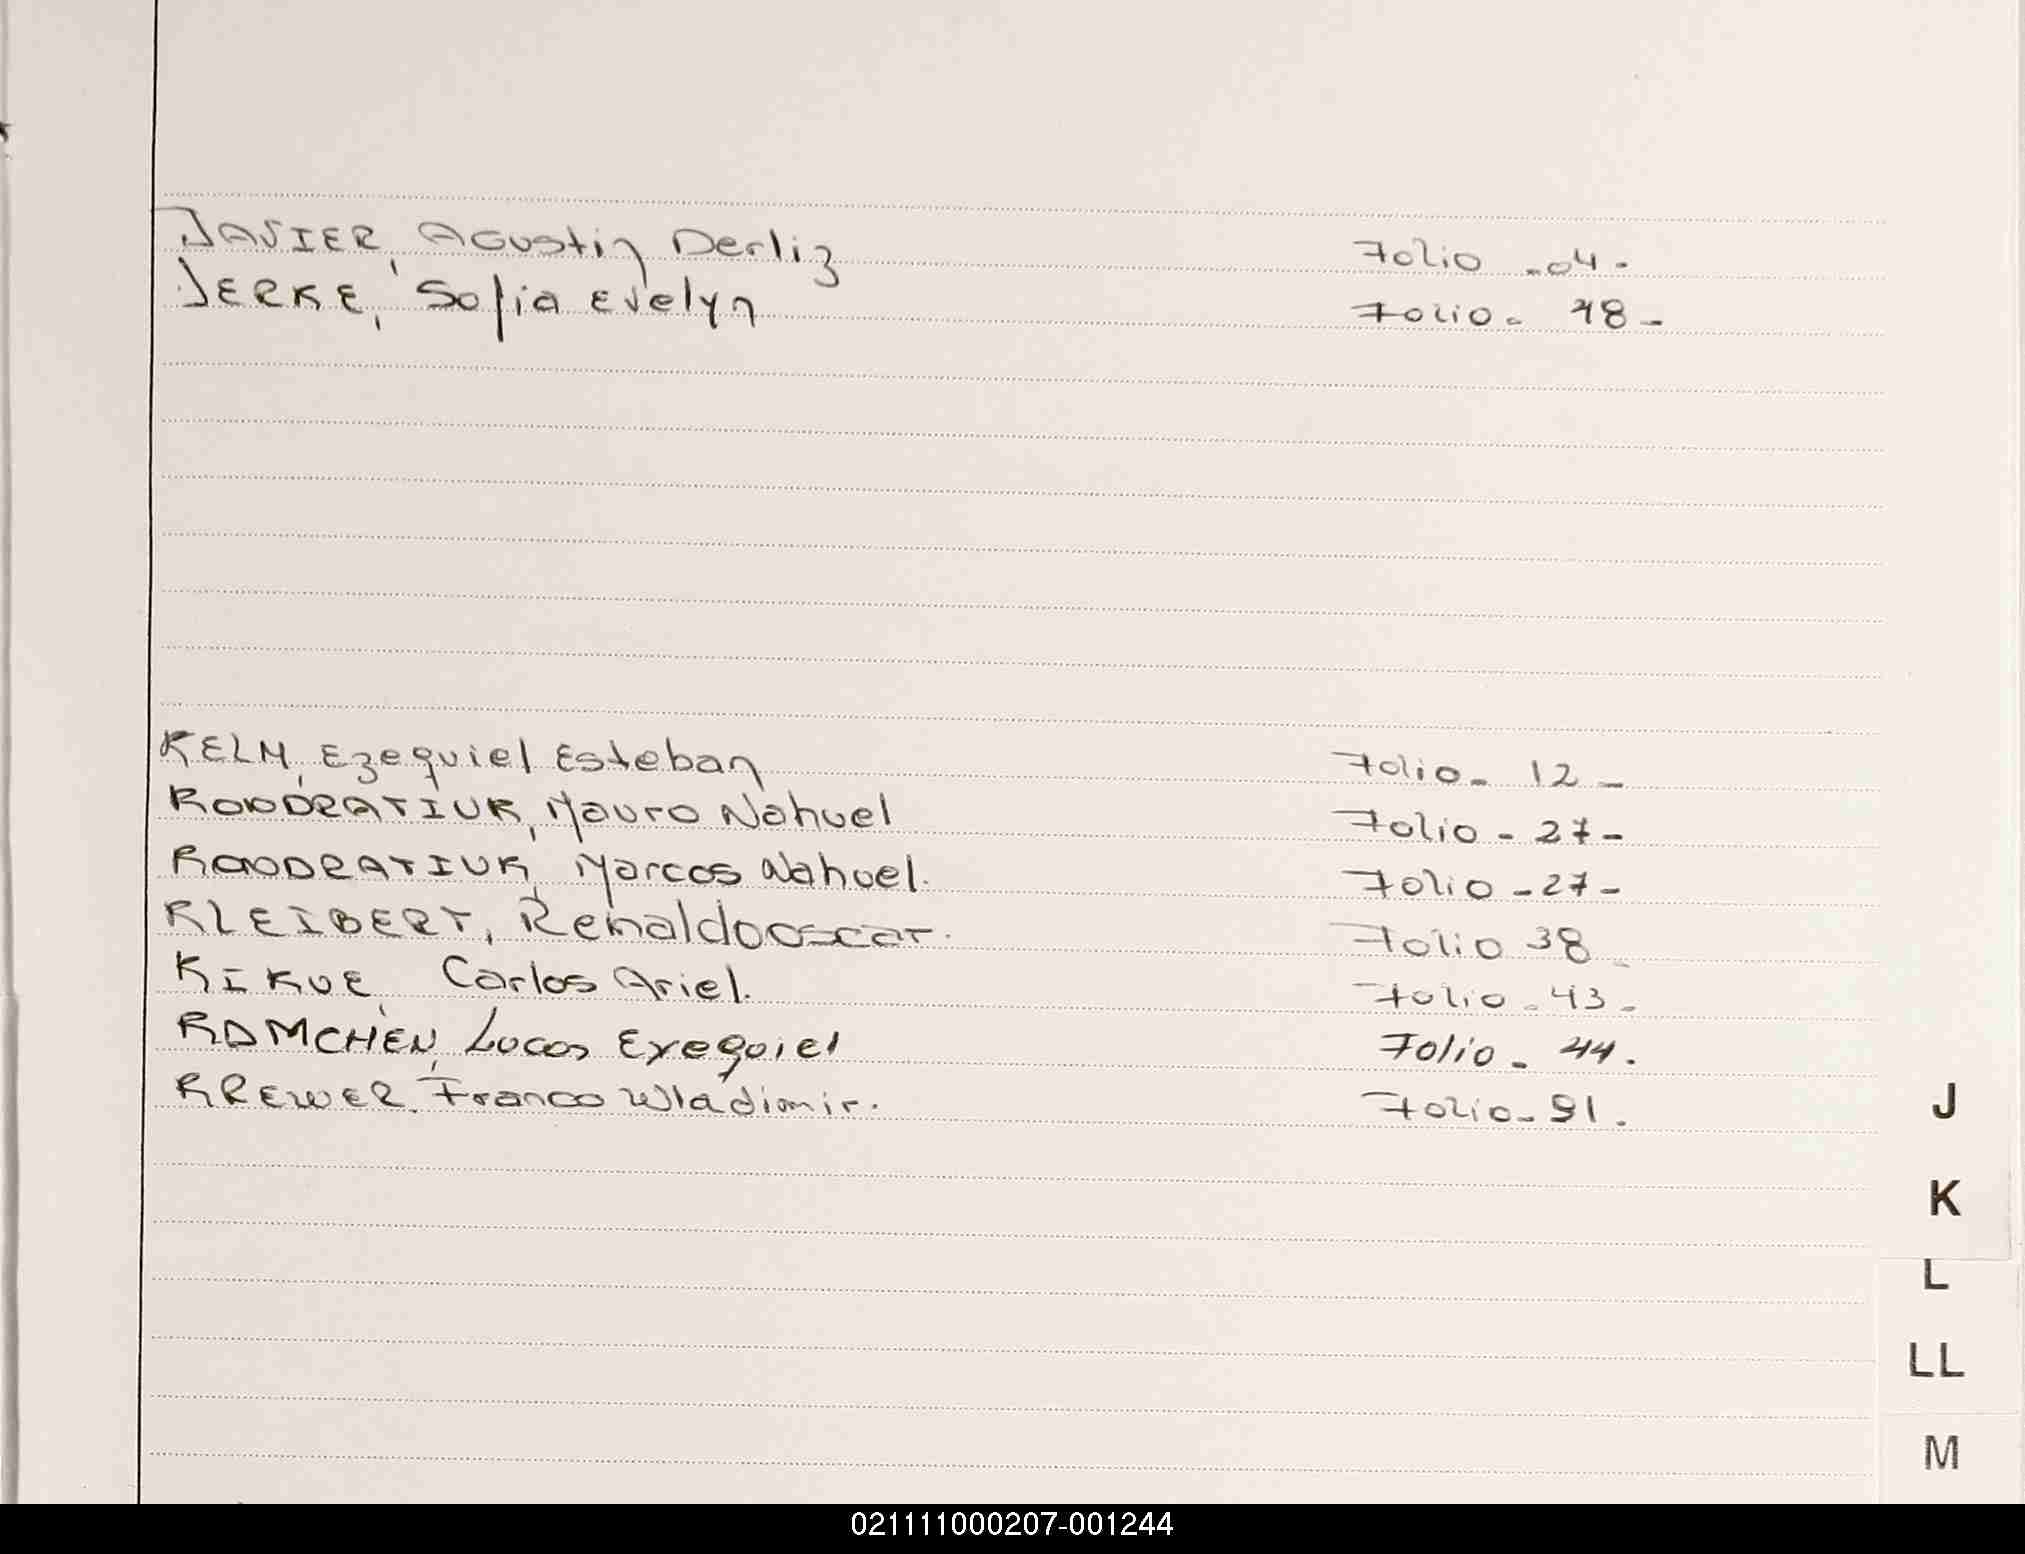 JAVIER, Agustin Derliz Folio -04-
JERKE, Sofia Evelyn Folio - 48 -
KELM, Ezequiel Esteban Folio - 12 -
KONDRATIUK, Mauro Nahuel Folio - 27 -
KONDRATIUK, Marcos Nahuel. Folio - 27 -
KLEIBERT, Renaldo oscar. Folio 38 -
KIKUE, Carlos Ariel. Folio - 43 -
Lucas Exequiel Folio - 44 .
KREWER, Franco Wladimir. Folio - 91 .
J
K
L
LL
M
021111000207-001244